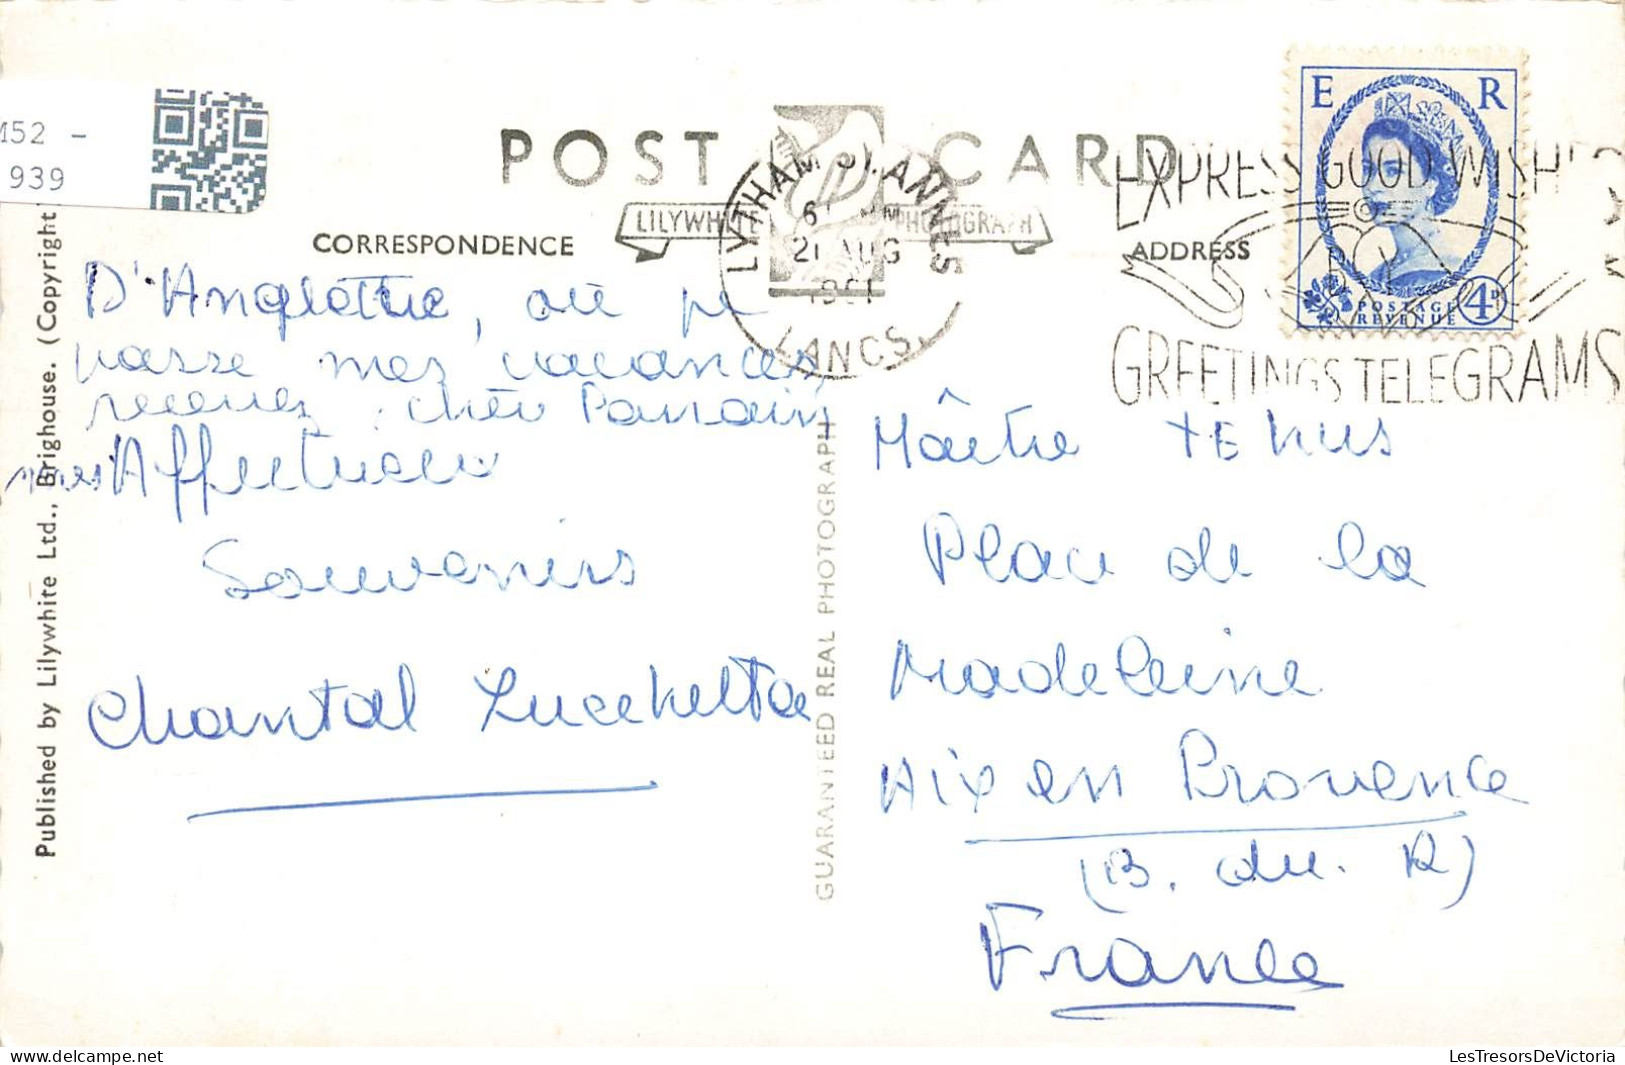 M52 -
939
POST CARD
LILYWHITE PHOTOGRAPH
CORRESPONDENCE
ADDRESS
LYTHAM ST. ANNES
21 AUG
LANCS.
EXPRESS GOOD WISHES
BY
GREETINGS TELEGRAMS
E R
POSTAGE
REVENUE
4D
D'Angleterre, où je
passe mes vacances,
recevez, cher Parrain
mes Affectueux
Souvenirs
Chantal
Maître
Place de la
Madeleine
Aix en Provence
(B. du. R)
France
Published by Lilywhite Ltd., Brighouse. (Copyright
GUARANTEED REAL PHOTOGRAPH
LesTresorsDeVictoria